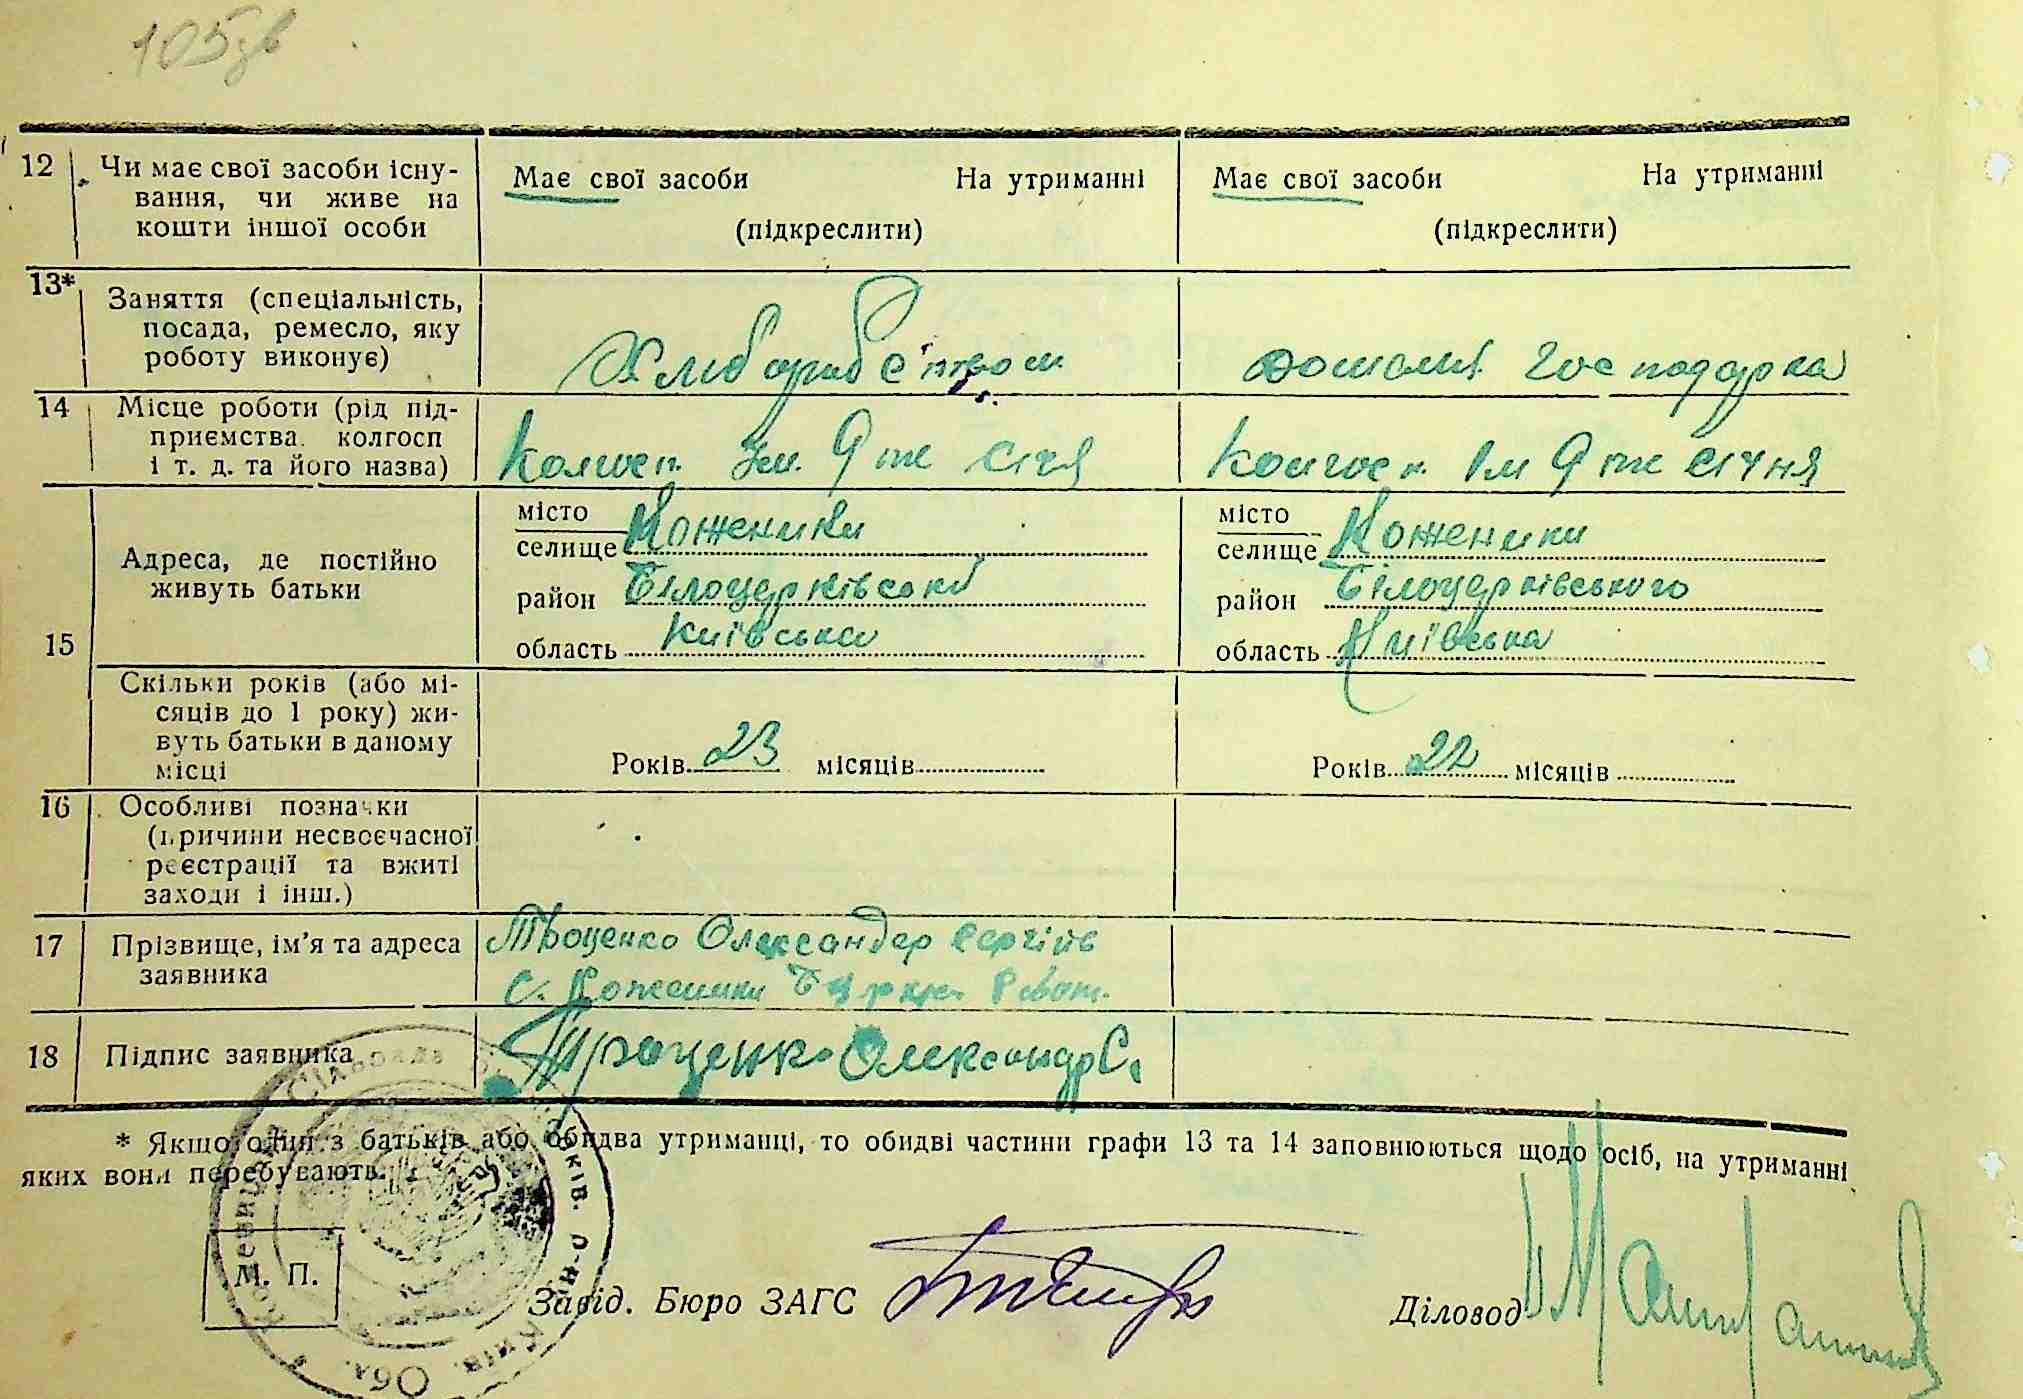 105зв
12 Чи має свої засоби існу- Має свої засоби На утриманні Має свої засоби На утриманні
вання, чи живе на
кошти іншої особи (підкреслити) (підкреслити)
13* Заняття (спеціальність,
посада, ремесло, яку
роботу виконує) Хлиборобством домашня господарка
14 Місце роботи (рід під-
приємства. колгосп
і т. д. та його назва) Колгосп. Ім. 9 те січя Колгосп. Ім 9 те січня
15 Адреса, де постійно живуть батьки
місто селище Коженики місто селище Коженики
район Білоцерківський район Білоцерківського
область Київська область Київська
Скільки років (або мі-
сяців до 1 року) жи-
вуть батьки в даному
місці Років 23 місяців Років 22 місяців
16 Особливі позначки
(причини несвоєчасної
реєстрації та вжиті
заходи і інш.)
17 Прізвище, ім'я та адреса Троценко Олександер Сергійв
заявника С. Коженики
18 Підпис заявника Троценко Олександр С.
* Якщо один з батьків або обидва утриманці, то обидві частини графи 13 та 14 заповнюються щодо осіб, на утриманні
яких вони перебувають.
М. П.
Завід. Бюро ЗАГС Діловод
Сільрада Київ. Обл.